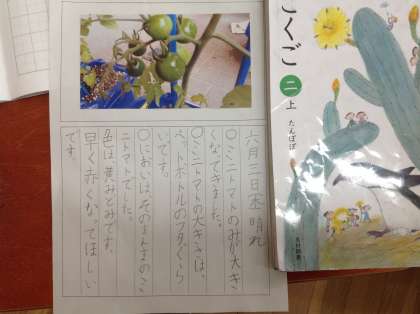 六月三日木 晴れ
○ミニトマトのみが大き
くなてきました。
○ミニトマトの大きさは、
ペットボトルのフタぐら
いです。
○においは、そのまんまのミ
ニトマトでした。
色は、黄みどみです。
早く赤くなってほしい
です。
こくご
二上
たんぽぽ
光村図書